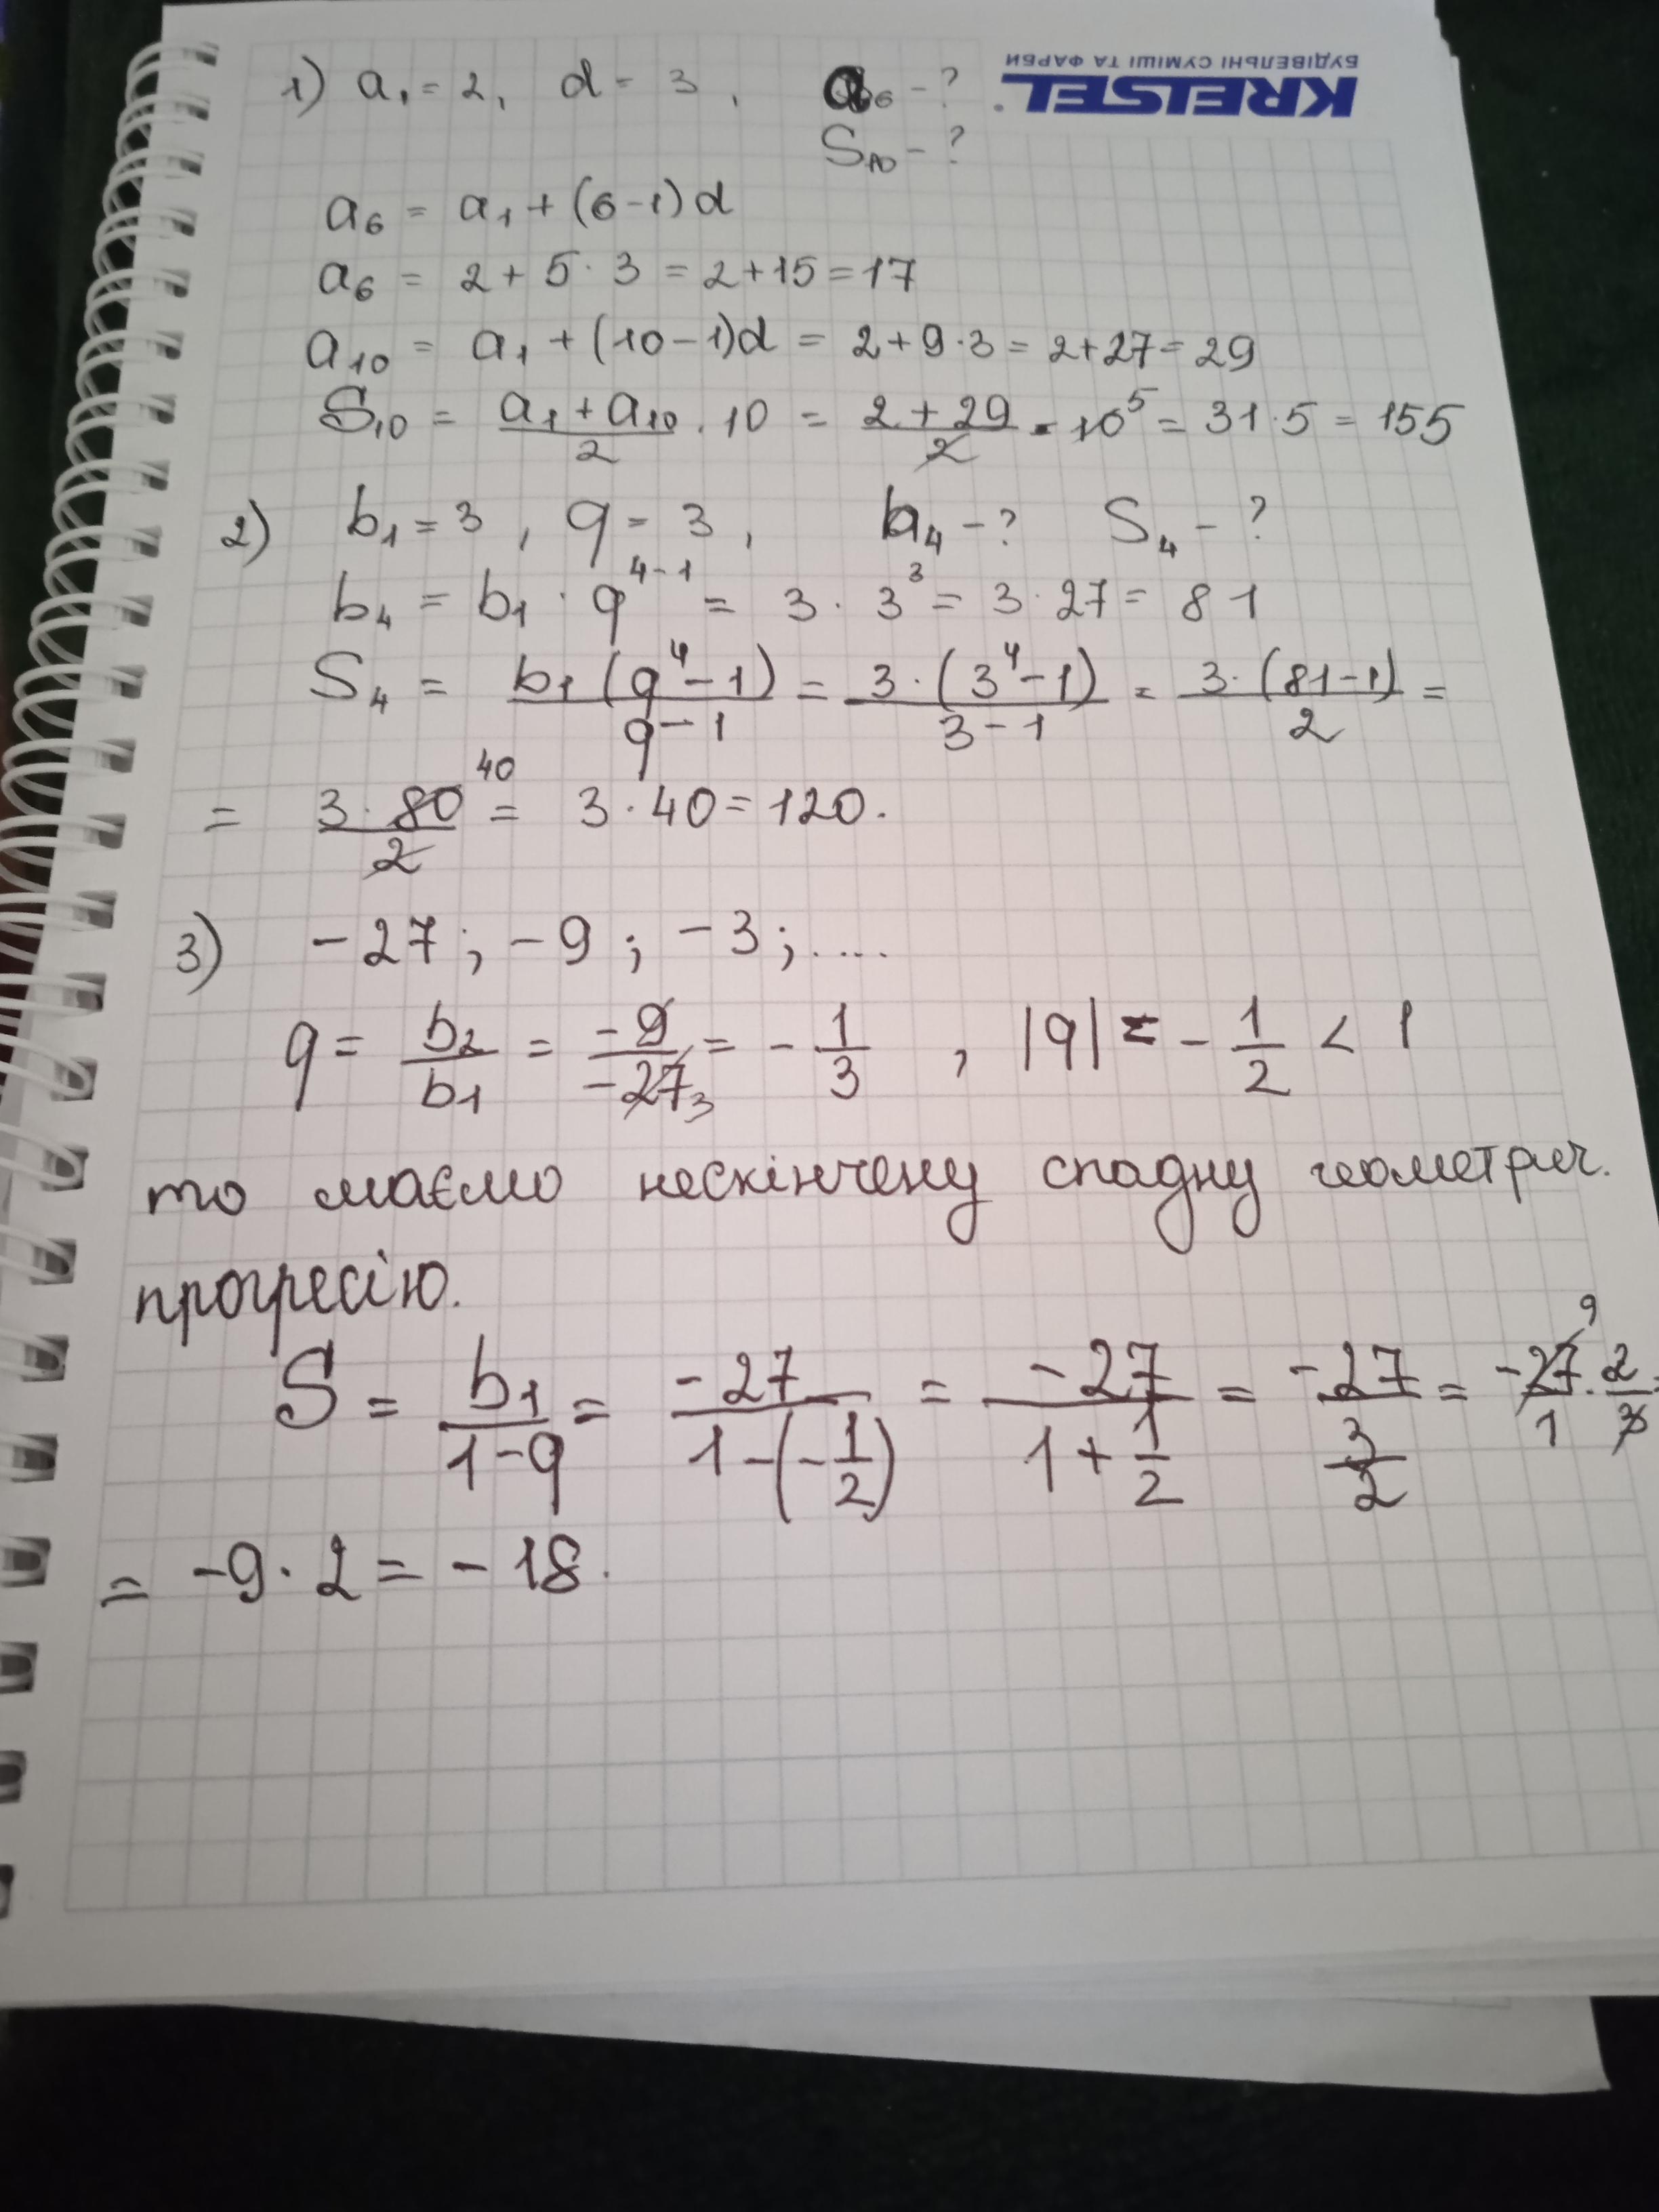 1) a₁ = 2, d = 3, a₆ - ?
KREISEL
БУДІВЕЛЬНІ СУМІШІ ТА ФАРБИ
S₁₀ - ?
a₆ = a₁ + (6-1)d
a₆ = 2 + 5 · 3 = 2+15 = 17
a₁₀ = a₁ + (10-1)d = 2+9·3 = 2+27 = 29
S₁₀ = (a₁ + a₁₀)/2 · 10 = (2 + 29)/2 · 10⁵ = 31·5 = 155
2) b₁ = 3, q = 3, b₄ - ? S₄ - ?
b₄ = b₁ · q⁴⁻¹ = 3 · 3³ = 3 · 27 = 81
S₄ = b₁(q⁴-1)/(q-1) = 3·(3⁴-1)/(3-1) = 3·(81-1)/2 =
= 3·80/2 ⁴⁰ = 3 · 40 = 120.
3) -27; -9; -3; ....
q = b₂/b₁ = -9/-27 ₃ = - 1/3 , |q| = - 1/2 < 1
то маємо нескінчену спадну геометрич.
прогресію.
S = b₁/(1-q) = -27/(1-(-1/2)) = -27/(1+1/2) = -27/(3/2) = -27/1 ⁹ · 2/3 =
= -9 · 2 = -18.